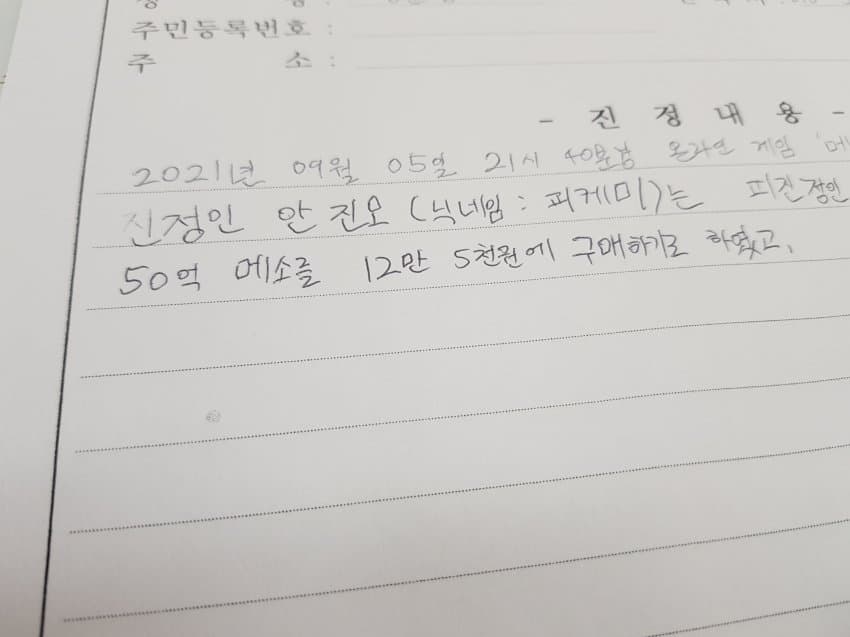 주민등록번호 :
주 소 :
- 진 정 내 용 -
2021년 09월 05일 21시 40분경 온라인 게임 '메
진정인 안진모 (닉네임 : 피케미)는 피진정인
50억 메소를 12만 5천원에 구매하기로 하였고,